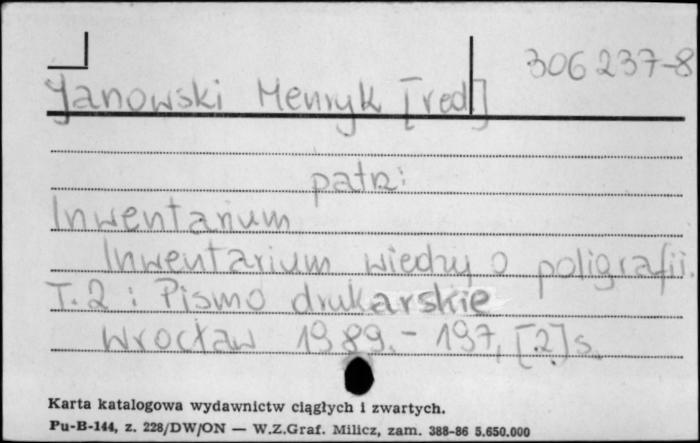 306 237-8
Janowski Henryk [red]
patrz:
Inwentarium
Inwentarium wiedzy o poligrafii.
T.2 : Pismo drukarskie
Wrocław 1989.- 197, [2] s.
Karta katalogowa wydawnictw ciągłych i zwartych.
Pu-B-144, z. 228/DW/ON — W.Z.Graf. Milicz, zam. 388-86 5.650.000